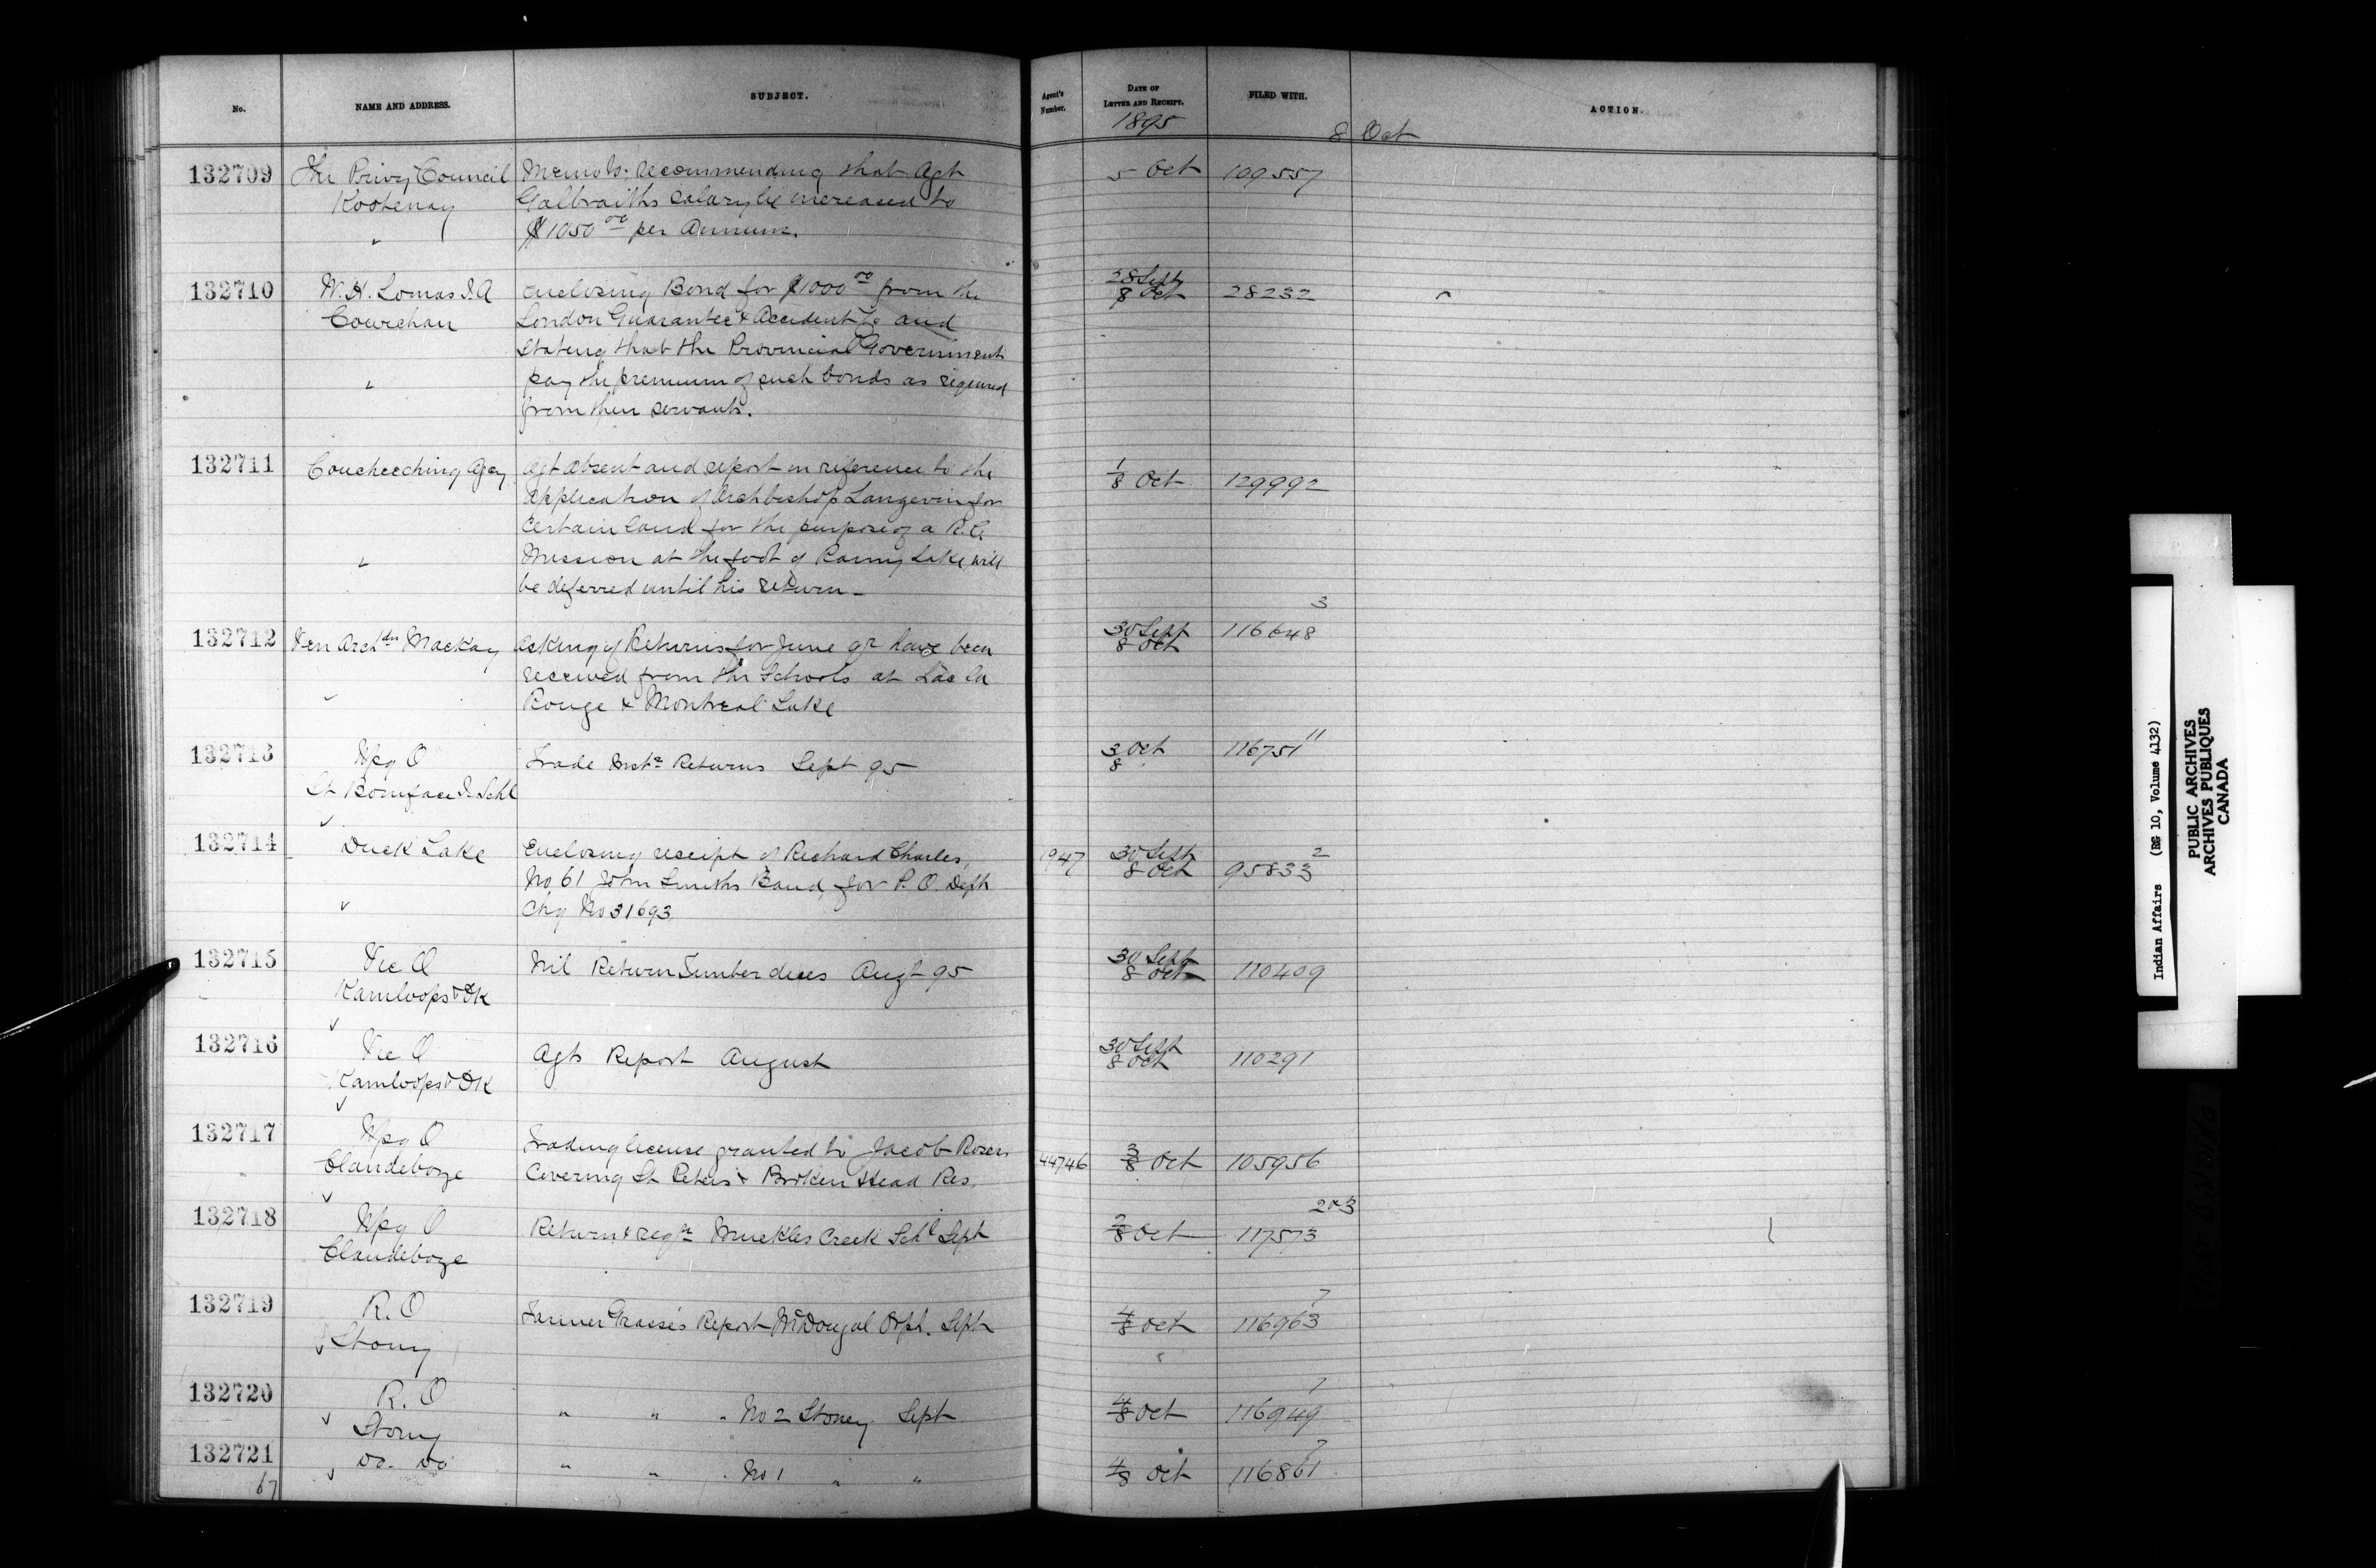 No.
NAME AND ADDRESS.
SUBJECT.
Agent's Number.
DATE OF LETTER AND RECEIPT.
FILED WITH.
ACTION.
1895
8 Oct
132709 The Privy Council Memo &c. recommending that Agt 5 Oct 109557
Kootenay Galbraiths Salary be increased to
" $1050 00 per Annum.
132710 W. H. Lomas I.A enclosing Bond for $1000 00 from the 28 Sept 8 Oct 28232
Cowichan London Guarantee & Accident Co and
stating that the Provincial Government
" pay the premium of such bonds as required
from their servants.
132711 Coucheeching Agcy Agt absent and report in reference to the 1/8 Oct 129992
application of Archbishop Langevin for
certain land for the purpose of a R.C.
" Mission at the foot of Rainy Lake will
be deferred until his return -
132712 Ven Archdn Mackay asking if Returns for June qr have been 30 Sept 8 Oct 116648 3
received from the Schools at Lac la
Rouge & Montreal Lake
132713 Wpg O Trade Instr Returns Sept 95 3 Oct 8 116751 11
St Boniface I. Schl
132714 Duck Lake Enclosing receipt of Richard Charles, 1947 30 Sept 8 Oct 95833 2
No 61 John Smiths Band, for P.O. Dept
Chq No 31693
132715 Vic O Nil Return Timber dues Augt 95 30 Sept 8 Oct 110409
Kamloops & OK
132716 Vic O Agts Report August 30 Sept 8 Oct 110291
Kamloops & OK
132717 Wpg O Trading license granted to Jacob Rosen 44746 3/8 Oct 105956
Clandeboye Covering St Peters & Broken Head Res.
132718 Wpg O Return & reqn Muckles Creek Schl Sept 2/8 Oct 117573 2&3
Clandeboye
132719 R.O Farmer Graese's Report McDougal Orph. Sept 4/8 Oct 116963 7
Stony
132720 R.O " " " No 2 Stoney Sept 4/8 Oct 116949 7
Stony
132721 do. do " " " No 1 " " 4/8 Oct 116861 7
67
Indian Affairs (RG 10, Volume 4132)
PUBLIC ARCHIVES
ARCHIVES PUBLIQUES
CANADA